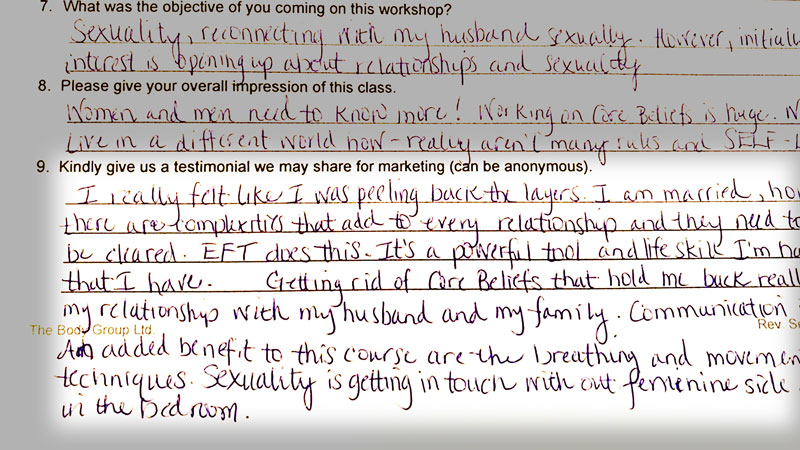 7. What was the objective of you coming on this workshop?
Sexuality, reconnecting with my husband sexually. However, initial
interest is opening up about relationships and sexuality
8. Please give your overall impression of this class.
Women and men need to know more! Working on Core Beliefs is huge. W
Live in a different world now - really aren't many rules and SELF-L
9. Kindly give us a testimonial we may share for marketing (can be anonymous).
I really felt like I was peeling back the layers. I am married, ho
there are complexitiys that add to every relationship and they need to
be cleared. EFT does this. It's a powerful tool and life skill I'm ha
that I have. Getting rid of Core Beliefs that hold me back reall
my relationship with my husband and my family. Communication
The Body Group Ltd. Rev. Se
An added benefit to this course are the breathing and movemen
techniques. Sexuality is getting in touch with out femenine side
in the bedroom.